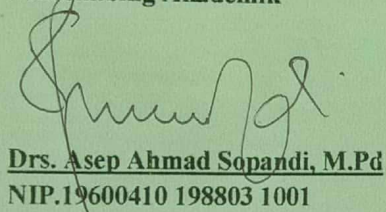 Akademik
Drs. Asep Ahmad Sopandi, M.Pd
NIP.19600410 198803 1001